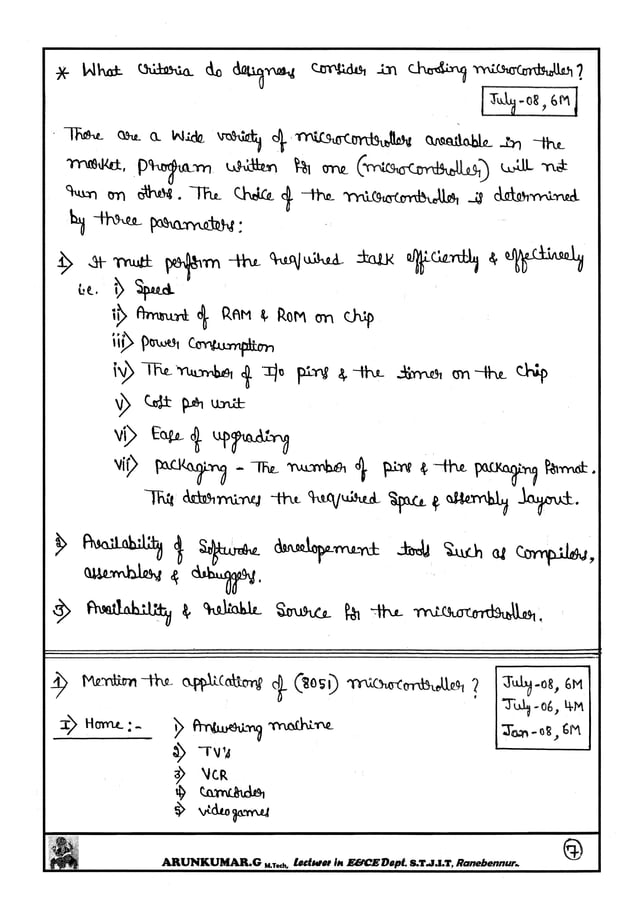 * What criteria do designers consider in choosing microcontroller?
July-08, 6M
There are a wide variety of microcontrollers available in the
market, program written for one (microcontroller) will not
run on others. The choice of the microcontroller is determined
by three parameters:
1) It must perform the required task efficiently & effectively
i.e. i) Speed
ii) Amount of RAM & ROM on chip
iii) power consumption
iv) The number of I/o pins & the timer on the chip
v) Cost per unit
vi) Ease of upgrading
vii) packaging - The number of pins & the packaging format.
This determines the required space & assembly layout.
2) Availability of software developement tools such as compilers,
assemblers & debuggers.
3) Availability & reliable source for the microcontroller.
1) Mention the applications of (8051) microcontroller?
July-08, 6M
July-06, 4M
Jan-08, 6M
I) Home:- 1) Answering machine
2) TV's
3) VCR
4) Camcorder
5) videogames
7
ARUNKUMAR.G M.Tech, Lecturer in E&CE Dept. S.T.J.I.T, Ranebennur.